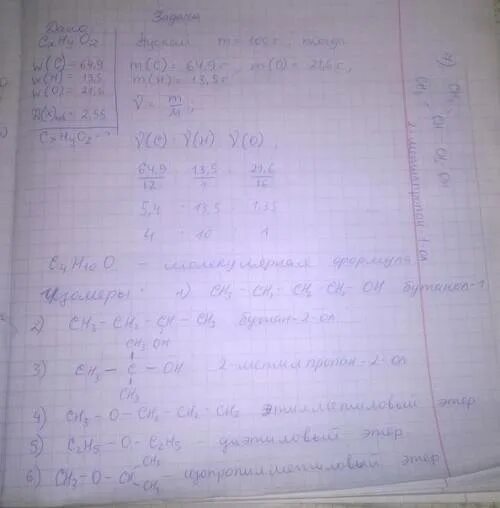 Задача
Дано
CxHyOz
w(C) = 64,9
w(H) = 13,5
w(O) = 21,6
= 2,55
CxHyOz - ?
Пусть m = 100 г, тогда
m(C) = 64,9 г, m(O) = 21,6 г,
m(H) = 13,5 г
ν = m/M,
ν(C) : ν(H) : ν(O)
64,9/12 : 13,5/1 : 21,6/16
5,4 : 13,5 : 1,35
4 : 10 : 1
C4H10O - молекулярная формула
Изомеры: 1) CH3 - CH2 - CH2 - CH2 - OH бутанол-1
2) CH3 - CH2 - CH - CH3 бутан-2-ол
OH
CH3
3) CH3 - C - OH 2-метилпропан-2-ол
CH3
4) CH3 - O - CH2 - CH2 - CH3 метиловый эфир
5) C2H5 - O - C2H5 - диэтиловый эфир
6) CH3 - O - CH изопропилметиловый эфир
CH3
CH3
7) CH3 CH CH2 OH
CH3
2-метилпропан-1-ол